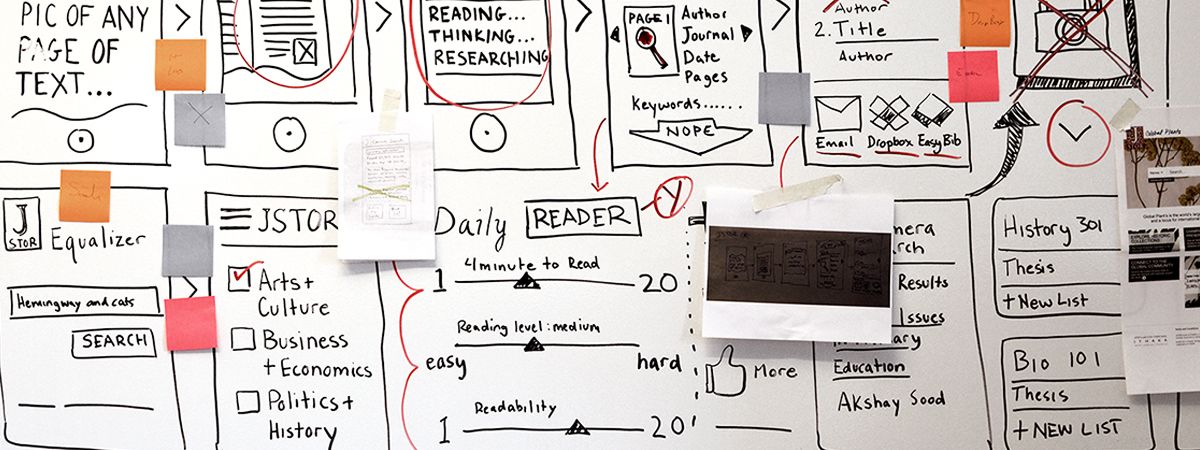 PIC OF ANY
PAGE OF
TEXT...
READING...
THINKING...
RESEARCHING
PAGE 1
Author
Journal
Date
Pages
Keywords......
NOPE
Author
2. Title
Author
Email
Dropbox
EasyBib
Dropbox
X
J
STOR
Equalizer
Hemingway and cats
SEARCH
JSTOR
Arts +
Culture
Business
+ Economics
Politics +
History
Daily READER
Y
4 minute to Read
1
20
Reading level: medium
easy
hard
Readability
1
20
More
Results
Issues
Education
Akshay Sood
History 301
Thesis
+ New List
Bio 101
Thesis
+ NEW LIST
Global Plants
EXPLORE HISTORIC
COLLECTIONS
CONNECT TO THE
GLOBAL COMMUNITY
ITHAKA